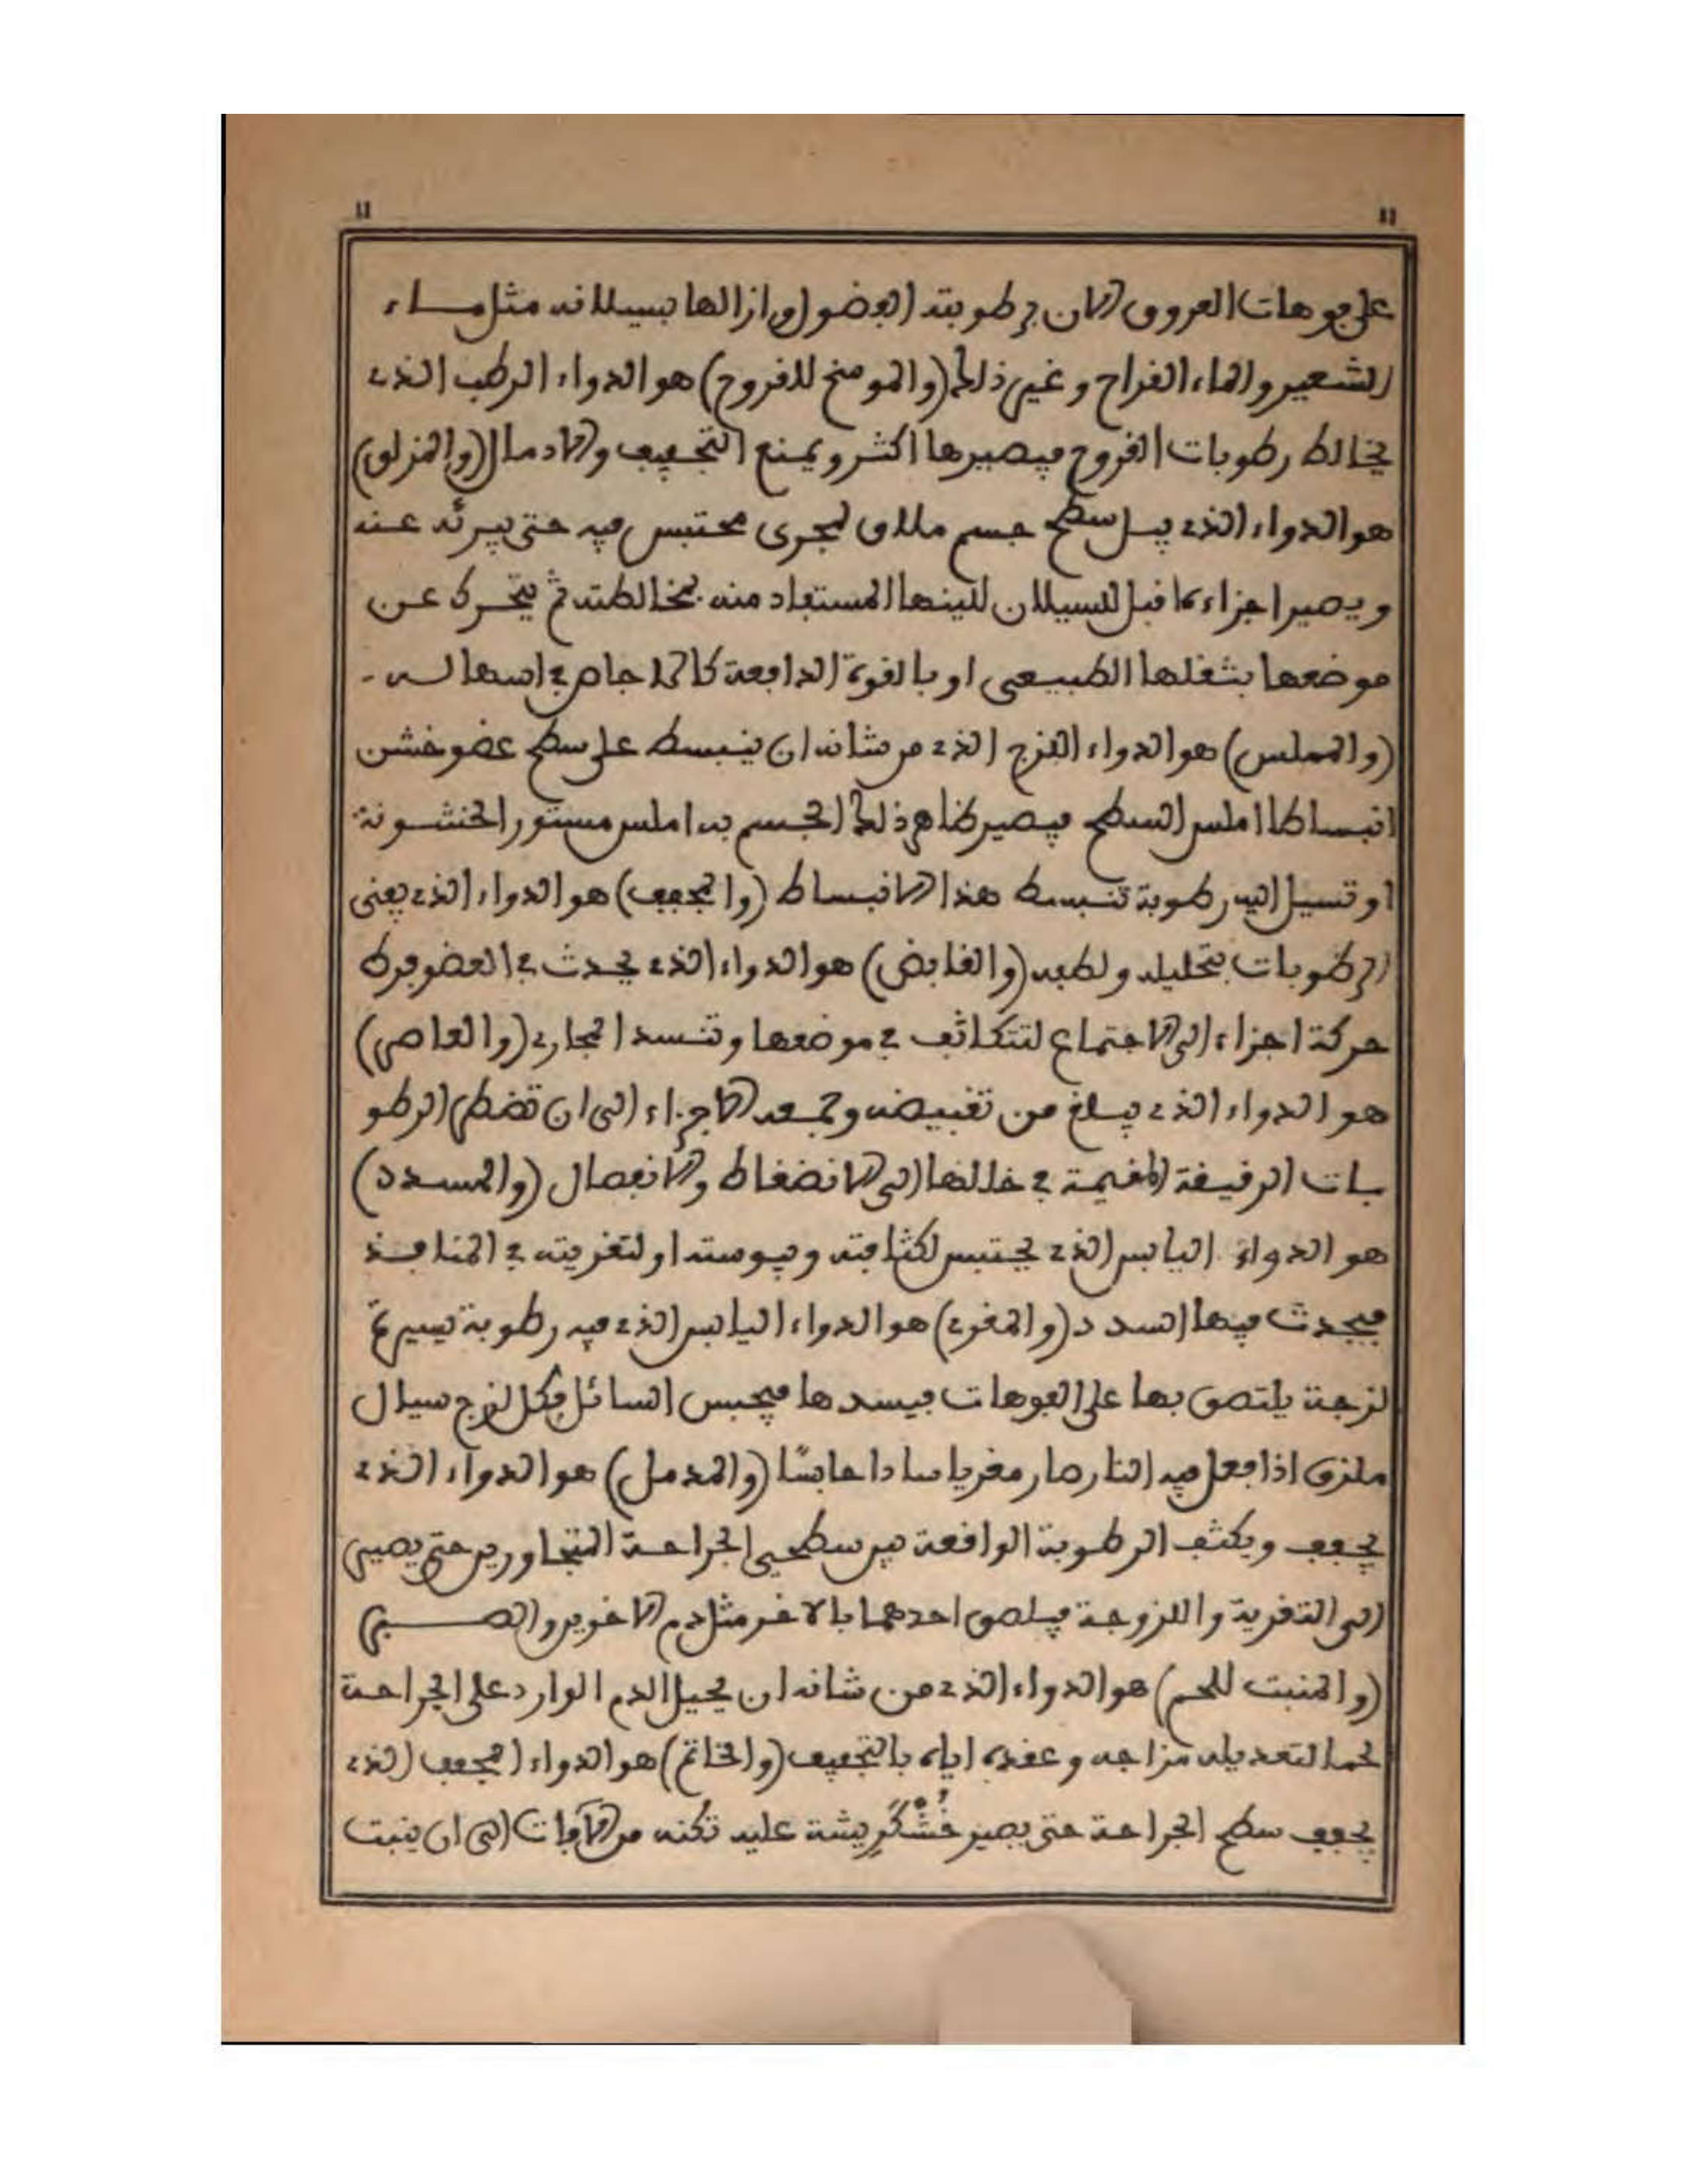 11 11
على فوهات العروق الان برطوبته الفضول وازالها بسيلانه مثل ماء
الشعير والماء القراح وغير ذلك (والموسخ للقروح) هو الدواء الرطب الذي
يخالط رطوبات القروح فيصيرها اكثر ويمنع التجفيف والادمال (والمزلق)
هو الدواء الذي يبل سطح جسم ملاق لمجرى محتبس فيه حتى يبرئه عنه
ويصير اجزاءه اقبل للسيلان للينها المستفاد منه بمخالطته ثم يتحرك عن
موضعها بثقلها الطبيعي او بالقوة الدافعة كالاجاص في اسهاله
(والمملس) هو الدواء اللزج الذي من شانه ان ينبسط على سطح عضو خشن
انبساطا املس السطح فيصير ظاهر ذلك الجسم به املس مستور الخشونة
او تسيل اليه رطوبة تنبسط هذا الانبساط (والمجفف) هو الدواء الذي يفنى
الرطوبات بتحليله ولطفه (والقابض) هو الدواء الذي يحدث في العضو فرط
حركة اجزاء الى الاجتماع لتتكاثف في موضعها وتنسد المجاري (والعاصر)
هو الدواء الذي يبلغ من تقبيضه وجمعه الاجزاء الى ان تضطر الرطو
بات الرقيقة المقيمة في خللها الى الانضغاط والانفصال (والمسدد)
هو الدواء اليابس الذي يحتبس لكثافته ويبوسته او لتغريته في المنافذ
فيحدث فيها السدد (والمغري) هو الدواء اليابس الذي فيه رطوبة يسيرة
لزجة يلتصق بها على الفوهات فيسدها فيحبس السائل فكل لزج سيال
ملزق اذا فعل فيه النار صار مغريا سادا حابسًا (والمدمل) هو الدواء الذي
يجفف ويكثف الرطوبة الواقعة بين سطحي الجراحة المتجاورين حتى يصير
الى التغرية واللزوجة فيلصق احدهما بالاخر مثل دم الاخوين والصبر
(والمنبت للحم) هو الدواء الذي من شانه ان يحيل الدم الوارد على الجراحة
لحما لتعديله مزاجه وعقده اياه بالتجفيف (والخاتم) هو الدواء المجفف الذي
يجفف سطح الجراحة حتى يصير خُشْكَرِيشة عليه تكنه من الآفات الى ان ينبت